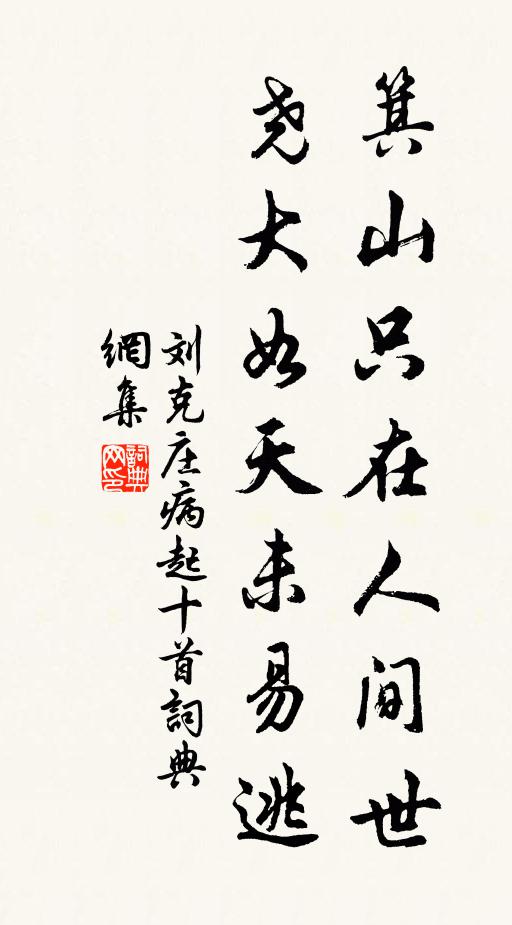 箕山只在人间世
尧大如天未易逃
刘克庄病起十首詞典
網集
詞典網印